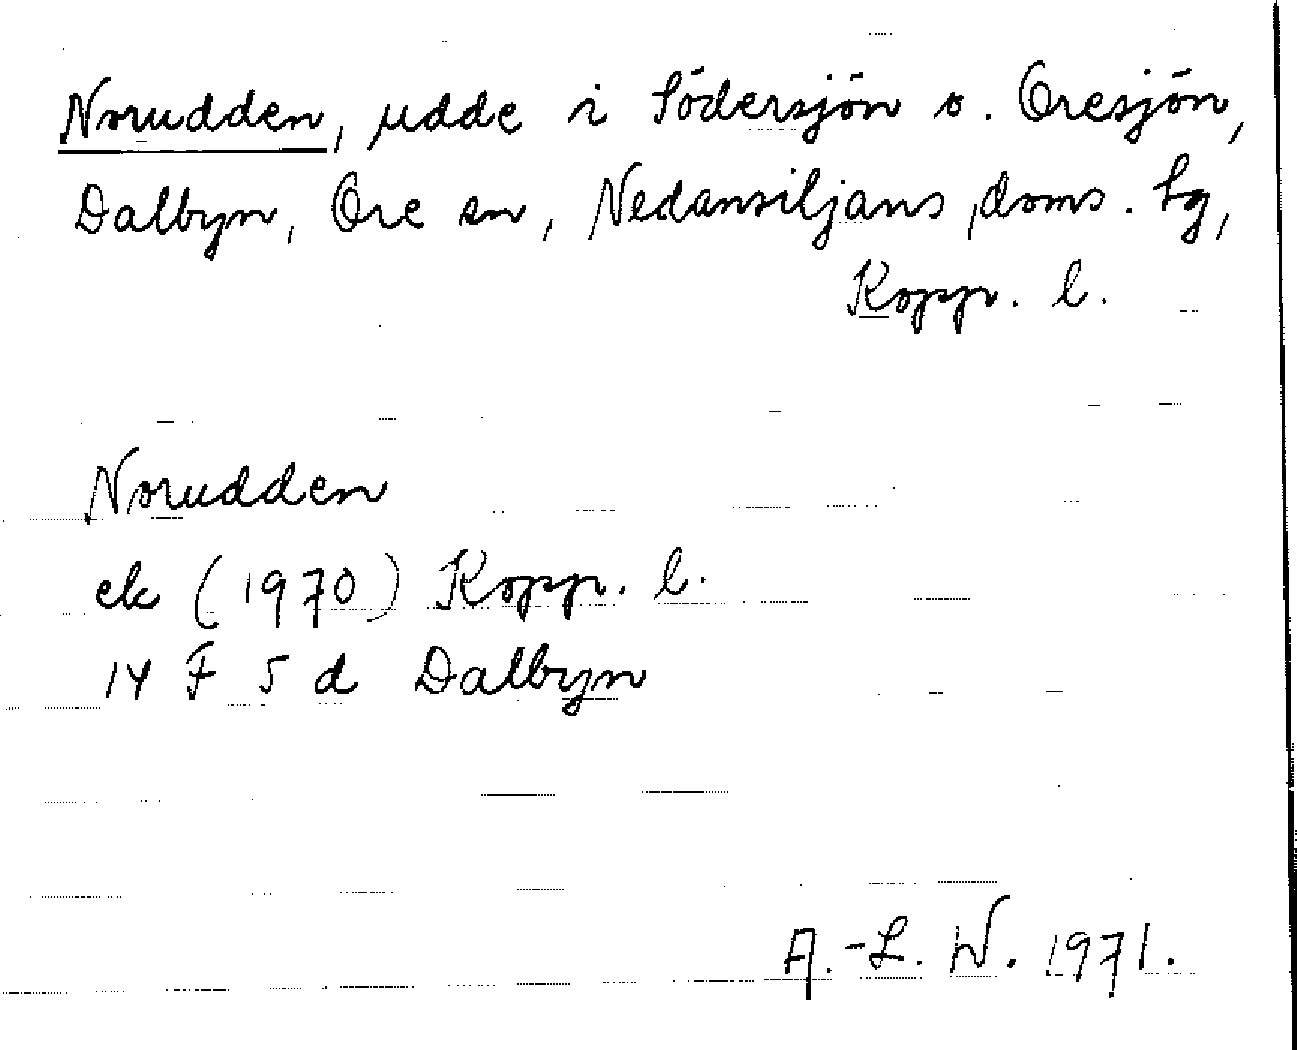 Norudden, udde i Södersjön o. Oresjön,
Dalbyn, Ore sn, Nedansiljans doms. hg,
Kopp. l.
Norudden
ek (1970) Kopp. l.
14 F 5 d Dalbyn
A.-L. W. 1971.